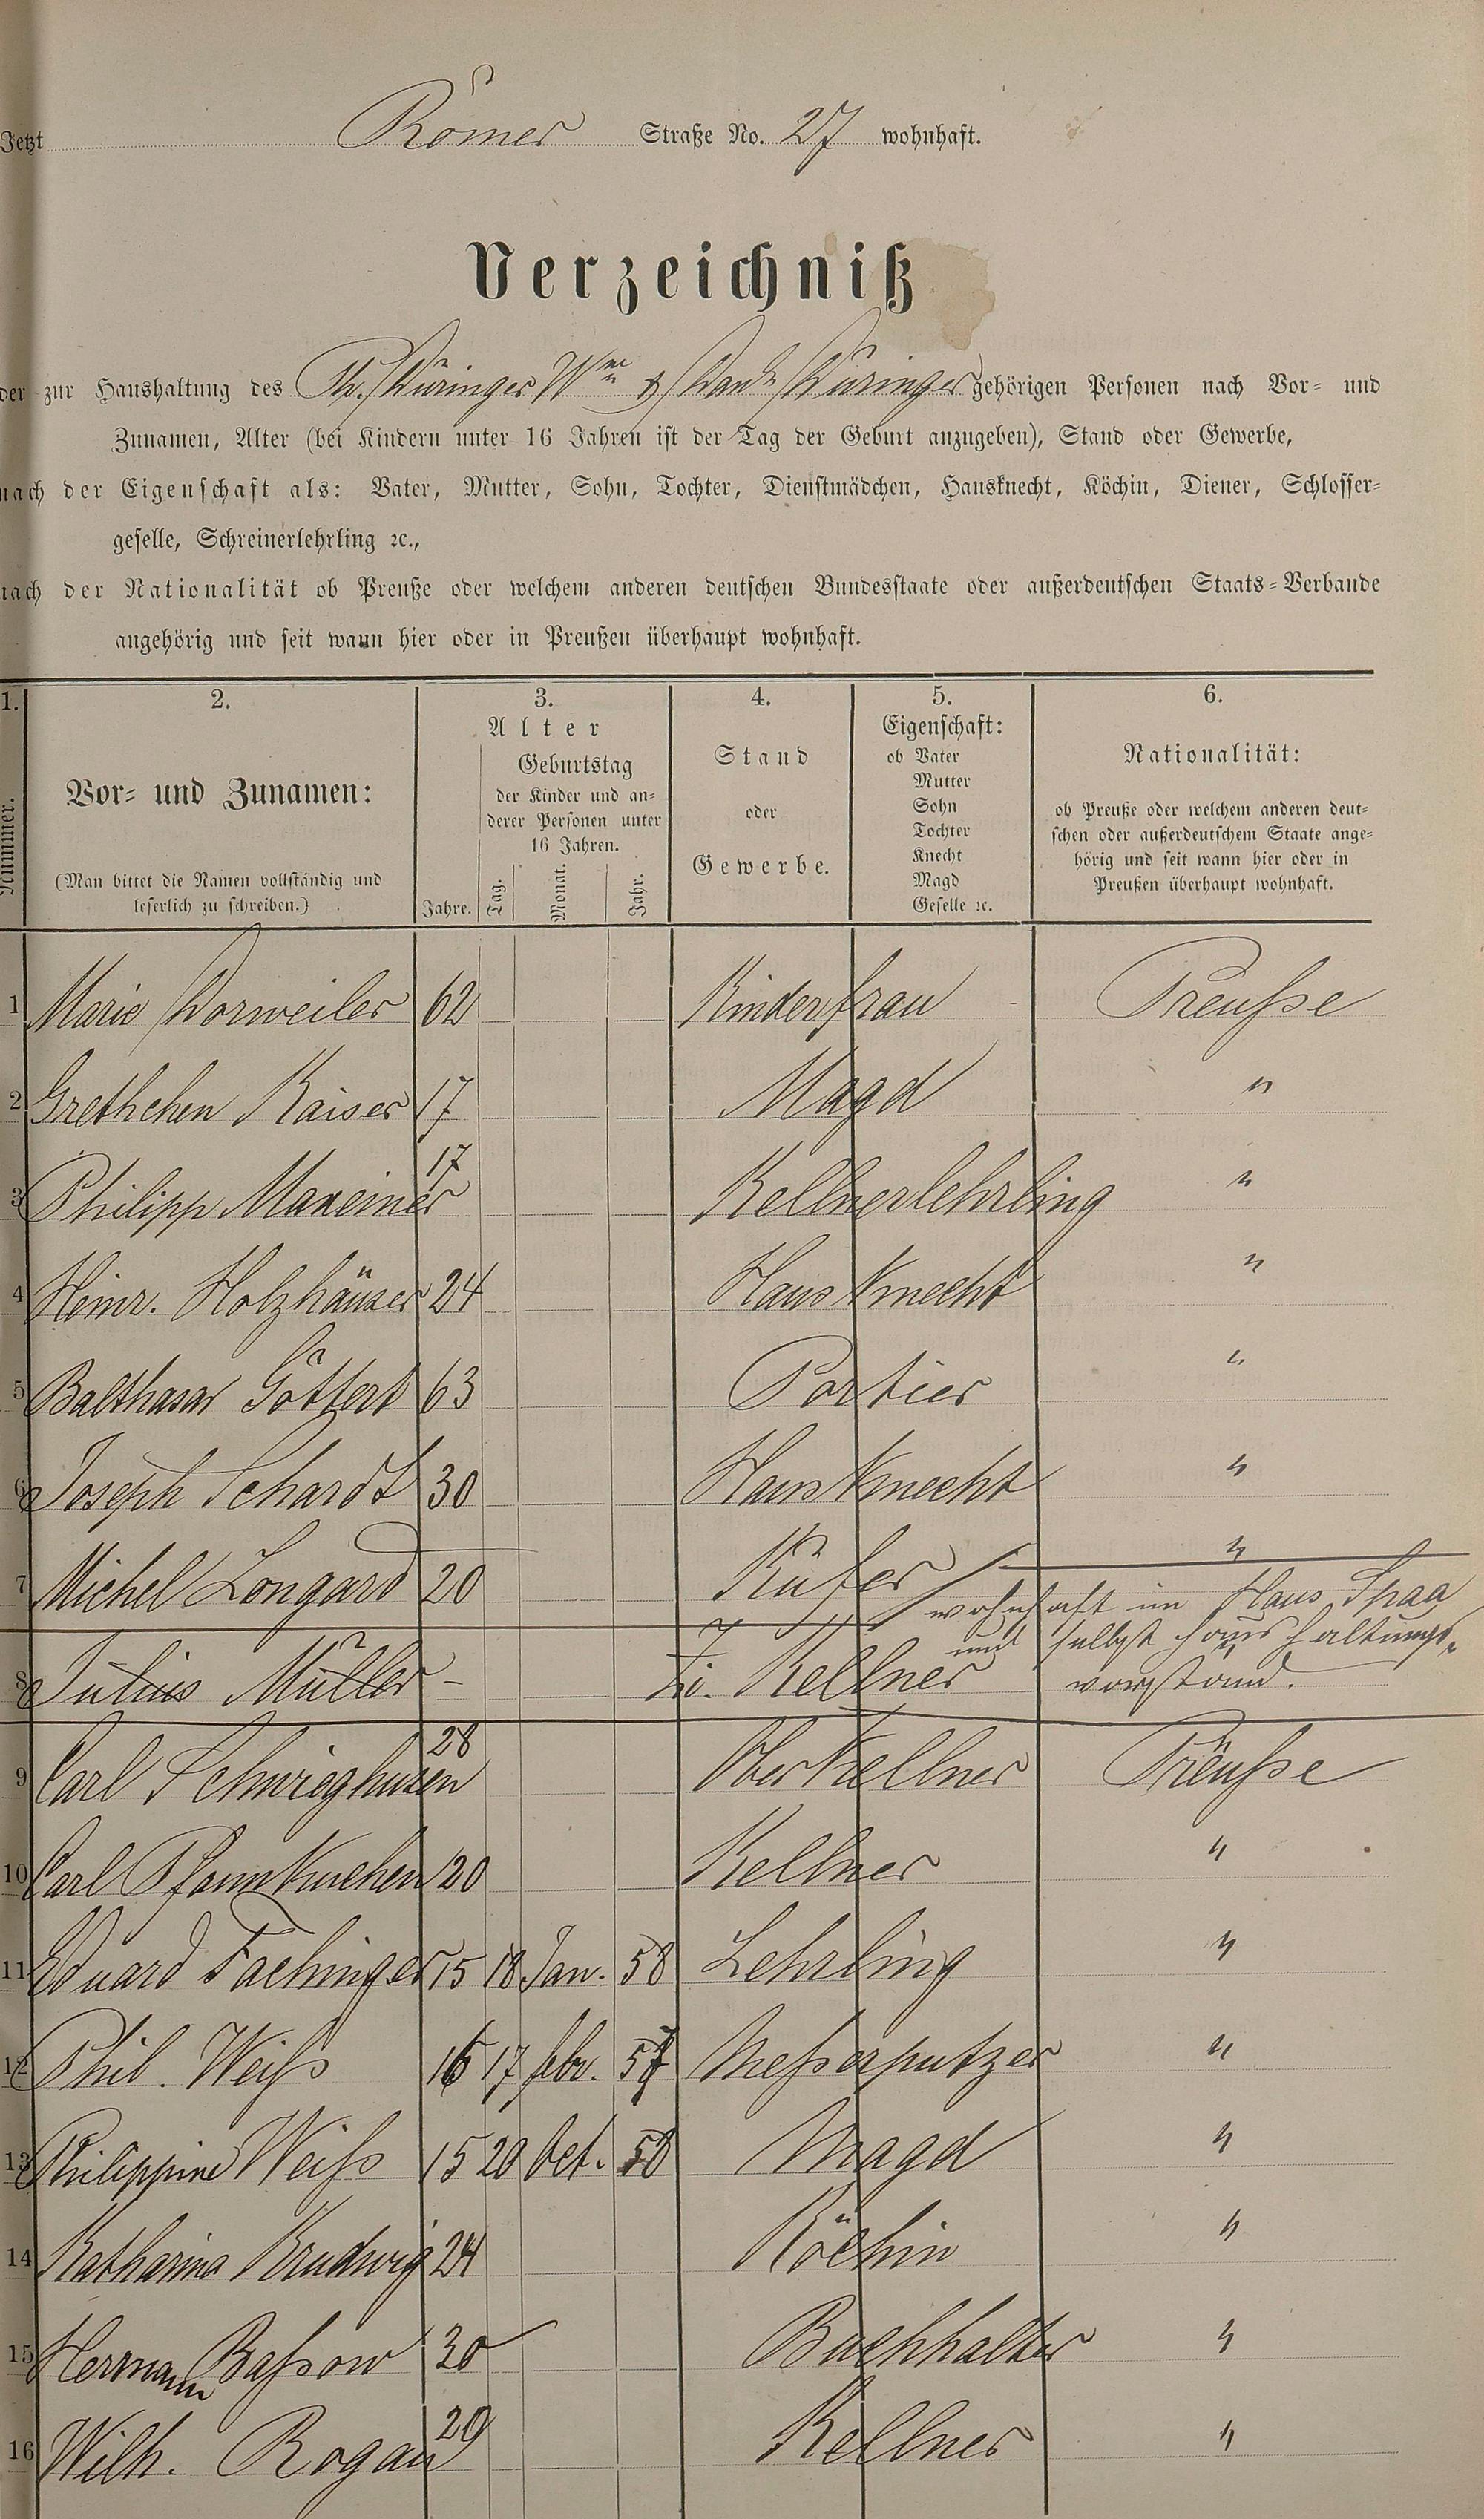 Jetzt Römer Straße No. 27 wohnhaft.
Verzeichniß
der zur Haushaltung des Ph. Düringer Wwe & Düringer gehörigen Personen nach Vor- und
Zunamen, Alter (bei Kindern unter 16 Jahren ist der Tag der Geburt anzugeben), Stand oder Gewerbe,
nach der Eigenschaft als: Vater, Mutter, Sohn, Tochter, Dienstmädchen, Hausknecht, Köchin, Diener, Schlosser-
geselle, Schreinerlehrling ꝛc.,
nach der Nationalität ob Preuße oder welchem anderen deutschen Bundesstaate oder außerdeutschen Staats-Verbande
angehörig und seit wann hier oder in Preußen überhaupt wohnhaft.
1. 2. 3. 4. 5. 6.
Nummer.
Vor- und Zunamen:
(Man bittet die Namen vollständig und
leserlich zu schreiben.)
Alter
Jahre.
Geburtstag
der Kinder und an-
derer Personen unter
16 Jahren.
Tag. Monat. Jahr.
Stand
oder
Gewerbe.
Eigenschaft:
ob Vater
Mutter
Sohn
Tochter
Knecht
Magd
Geselle ꝛc.
Nationalität:
ob Preuße oder welchem anderen deut-
schen oder außerdeutschem Staate ange-
hörig und seit wann hier oder in
Preußen überhaupt wohnhaft.
1 Marie Dorweiler 62 Kinderfrau Preuße
2 Grethchen Kaiser 17 Magd "
3 Philipp Maxeiner 17 Kellnerlehrling "
4 Heinr. Holzhäuser 24 Hausknecht "
5 Balthasar Göttert 63 Portier "
6 Joseph Schardt 30 Hausknecht "
7 Michel Longard 20 Küfer "
8 Julius Müller - Zi. Kellner wohnhaft im Haus Spaa
und selbst Haushaltungs-
vorstand.
9 Carl Schwieghusen 28 Oberkellner Preuße
10 Carl Pfannkuchen 20 Kellner "
11 Eduard Fachinger 15 18 Jan. 58 Lehrling "
12 Phil. Weiß 16 17 febr. 57 Meßerputzer "
13 Philippine Weiß 15 20 Oct. 58 Magd "
14 Katharina Krudwig 24 Köchin "
15 Hermann Baßow 30 Buchhalter "
16 Wilh. Rogau 29 Kellner "